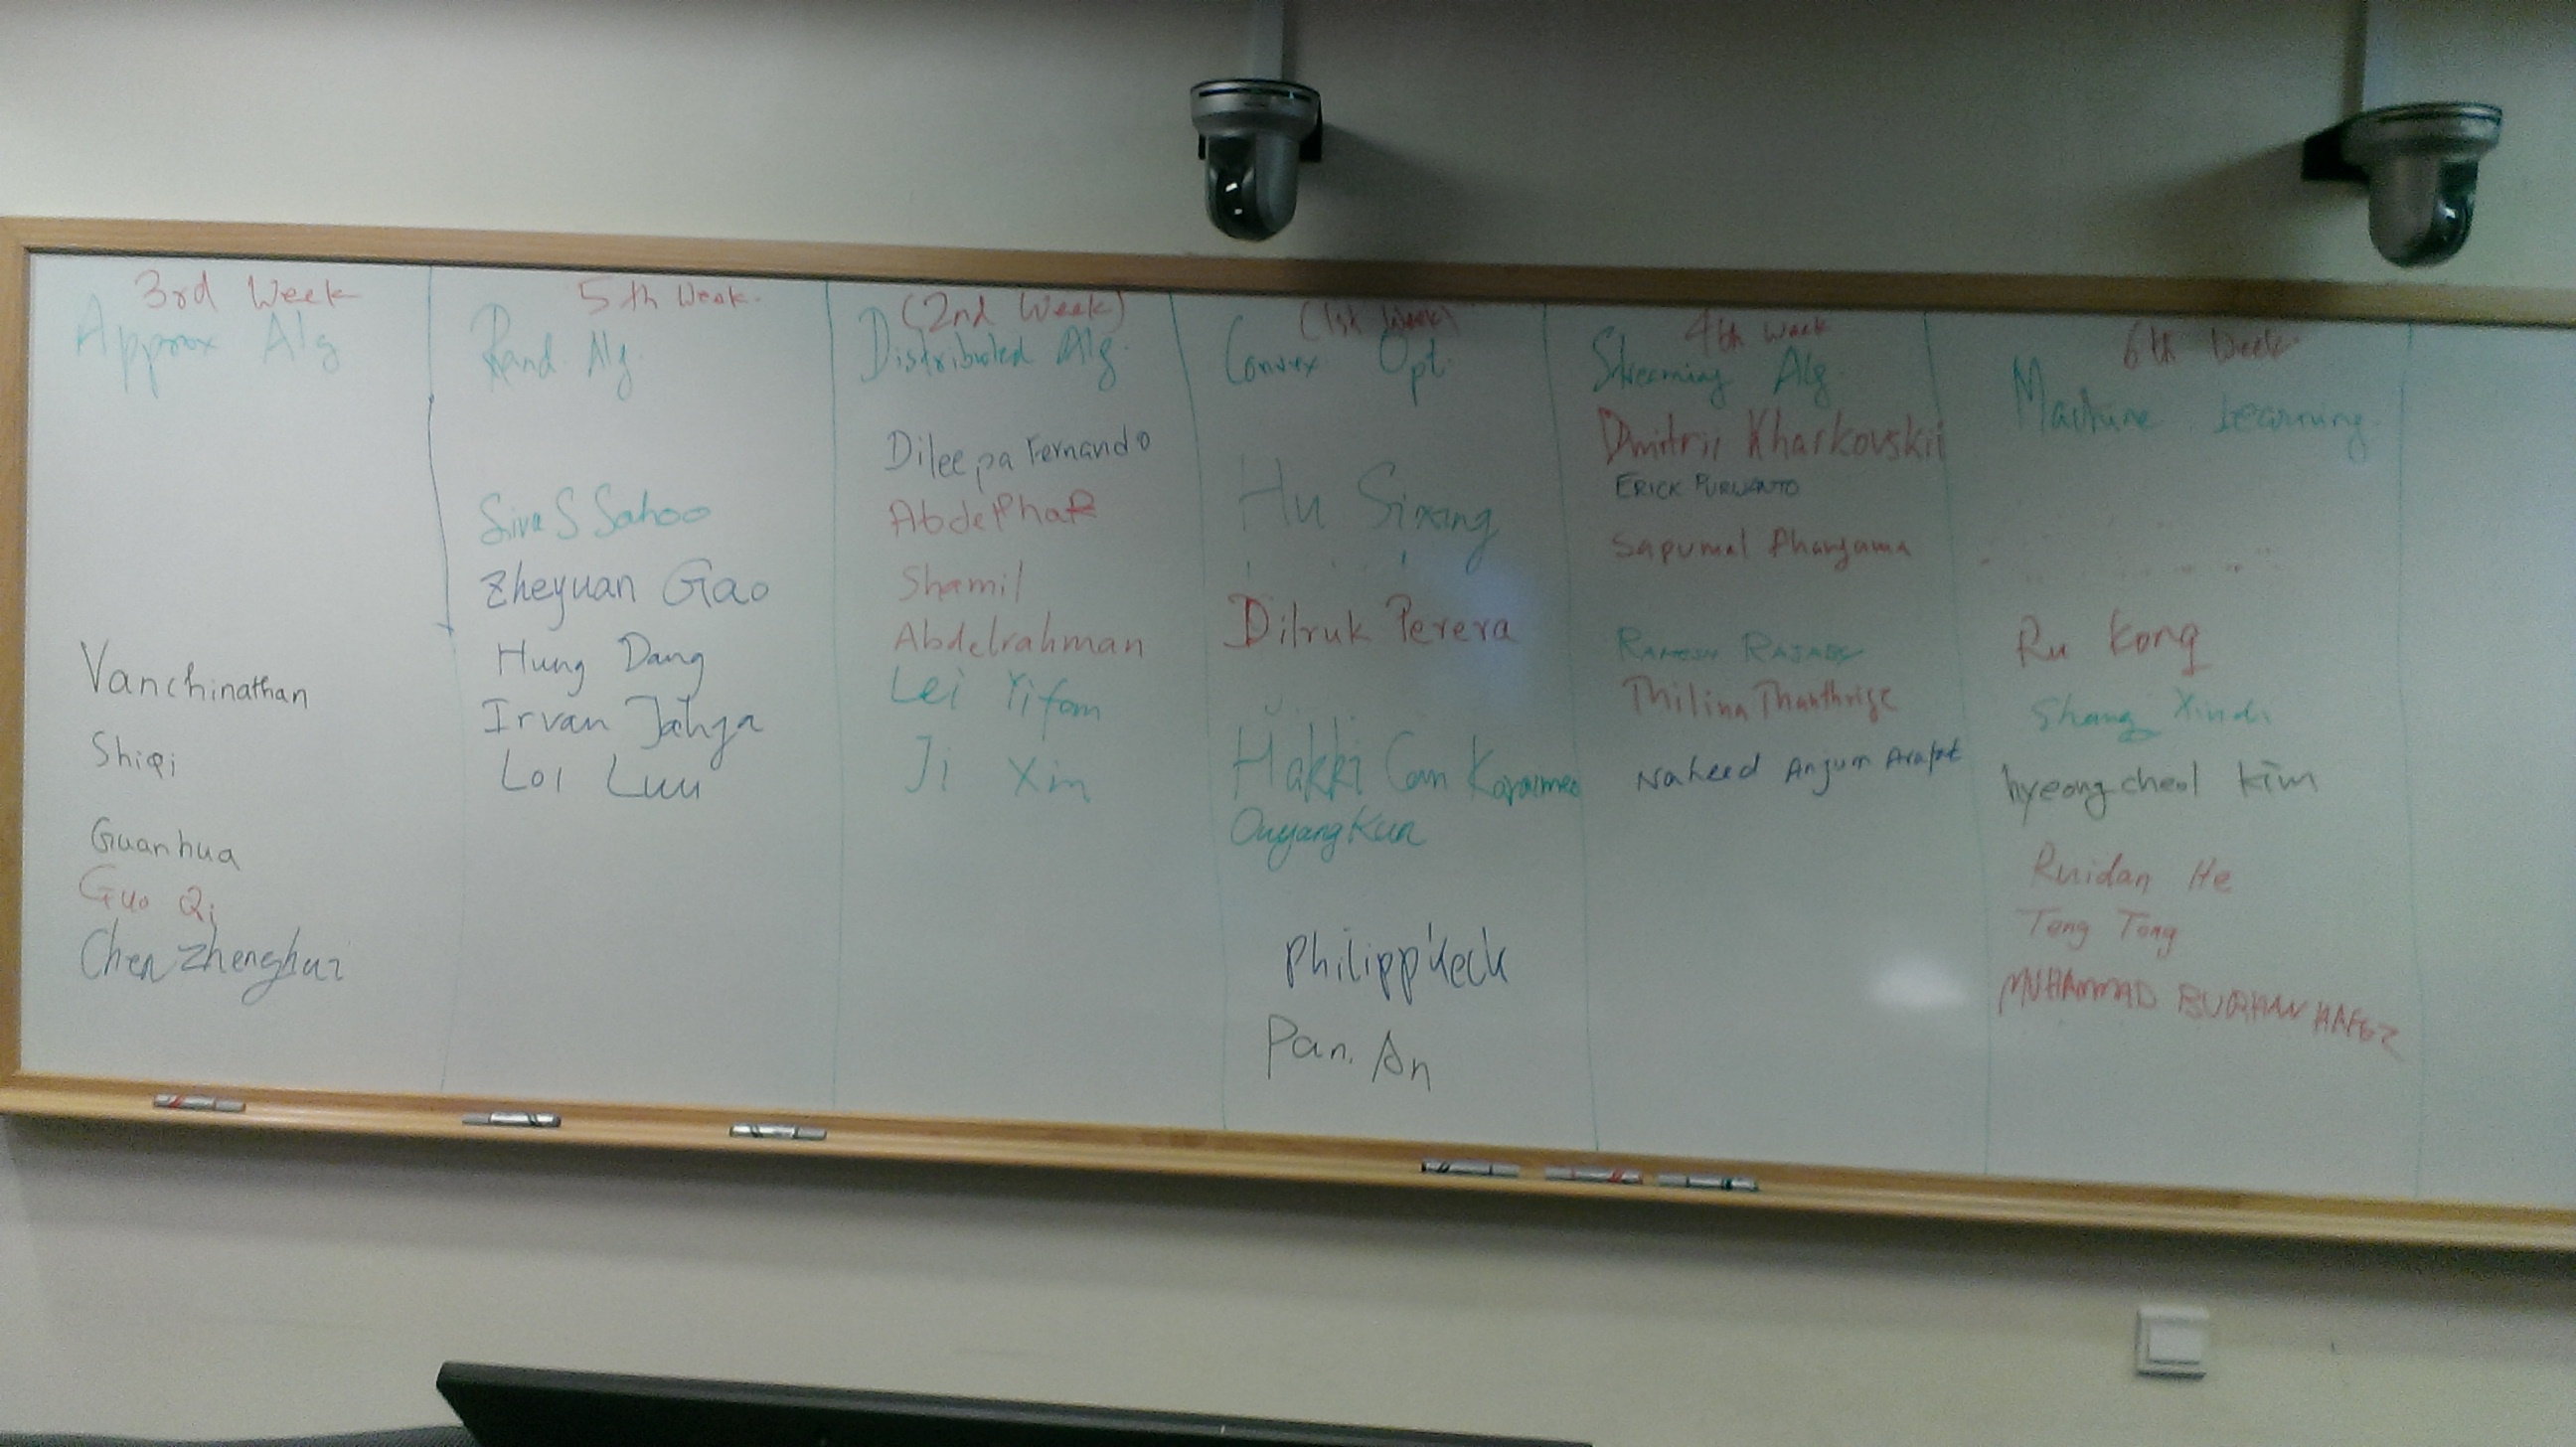 3rd Week
Approx Alg
Vanchinathan
Shiqi
Guanhua
Guo Qi
Chen Zhenghui
5th Week.
Rand. Alg.
Siva S Sahoo
Zheyuan Gao
Hung Dang
Irvan Jahja
Loi Luu
(2nd Week)
Distributed Alg.
Dileepa Fernando
Shamil
Abdelrahman
Lei Yifan
Ji Xin
(1st Week)
Convex Opt.
Hu Sixing
Dilruk Perera
Hakki Can Karaimer
Ouyang Kun
Philipp Keck
Pan. An
4th Week
Streaming Alg.
Dmitrii Kharkovskii
ERICK PURWANTO
Sapumal
Thilina Thanthrige
Naheed Anjum Arafat
6th Week.
Machine Learning.
Ru Kong
Shang Xindi
hyeongcheol kim
Ruidan He
Teng Tong
MUHAMMAD BURHAN HAFEZ